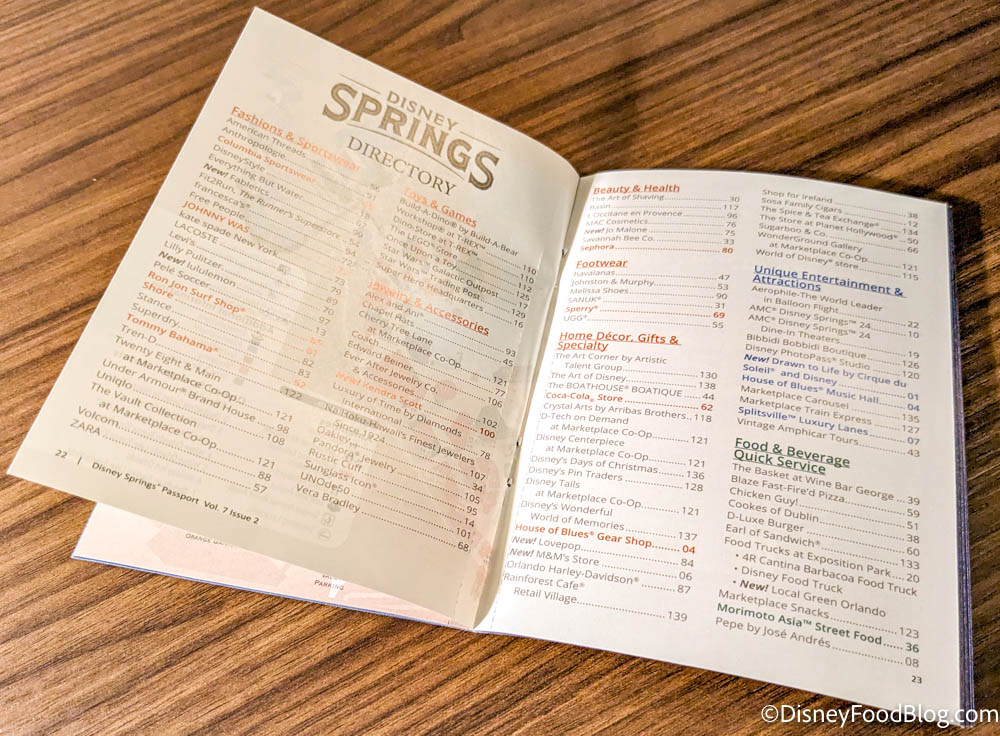 DISNEY
SPRINGS
DIRECTORY
Fashions & Sportswear
American Threads
Anthropologie
Columbia Sportswear
DisneyStyle
Everything But Water
New! Fabletics
Fit2Run, The Runner's Superstore
francesca's®
Free People
JOHNNY WAS
kate spade New York
LACOSTE
Levi's
Lilly Pulitzer
New! lululemon
Pelé Soccer
Ron Jon Surf Shop®
Shore
Stance
Superdry
Tommy Bahama®
Tren-D
Twenty Eight & Main
at Marketplace Co-Op 122
Under Armour® Brand House
Uniqlo
The Vault Collection
at Marketplace Co-Op 121
Volcom 88
ZARA 57
Toys & Games
Build-A-Dino® by Build-A-Bear
Workshop® at T-REX™ 110
Dino-Store at T-REX™ 110
The LEGO® Store
Once Upon a Toy
Star Wars™ Galactic Outpost
Star Wars™ Trading Post
Super Hero Headquarters 16
Jewelry & Accessories
Alex and Ani® 93
Chapel Hats 45
Cherry Tree Lane
at Marketplace Co-Op 121
Coach 77
Edward Beiner 106
Ever After Jewelry Co.
& Accessories
New! Kendra Scott 100
Luxury of Time by Diamonds
International 78
Na Hoku-Hawaii's Finest Jewelers
Since 1924 107
Oakley 34
Pandora® Jewelry 105
Rustic Cuff 95
Sunglass Icon® 14
UNOde50 101
Vera Bradley 68
22 | Disney Springs® Passport Vol. 7 Issue 2
PARKING
Beauty & Health
The Art of Shaving 30
Basin 117
L'Occitane en Provence 96
MAC Cosmetics 76
New! Jo Malone 75
Savannah Bee Co. 33
Sephora 80
Footwear
havaianas 47
Johnston & Murphy 53
Melissa Shoes 90
SANUK® 31
Sperry® 69
UGG® 55
Home Décor, Gifts &
Specialty
The Art Corner by Artistic
Talent Group 130
The Art of Disney 138
The BOATHOUSE® BOATIQUE 44
Coca-Cola® Store 62
Crystal Arts by Arribas Brothers 118
D-Tech on Demand
at Marketplace Co-Op 121
Disney Centerpiece
at Marketplace Co-Op 121
Disney's Days of Christmas 136
Disney's Pin Traders 128
Disney Tails
at Marketplace Co-Op 121
Disney's Wonderful
World of Memories 137
House of Blues® Gear Shop 04
New! Lovepop 84
New! M&M's Store 06
Orlando Harley-Davidson® 87
Rainforest Cafe®
Retail Village 139
Shop for Ireland 38
Sosa Family Cigars 12
The Spice & Tea Exchange® 134
The Store at Planet Hollywood® 50
Sugarboo & Co. 66
WonderGround Gallery
at Marketplace Co-Op 121
World of Disney® store 115
Unique Entertainment &
Attractions
Aerophile-The World Leader
in Balloon Flight 22
AMC® Disney Springs™ 24 10
AMC® Disney Springs™ 24
Dine-In Theaters 19
Bibbidi Bobbidi Boutique 126
Disney PhotoPass® Studio 120
New! Drawn to Life by Cirque du
Soleil® and Disney 01
House of Blues® Music Hall 04
Marketplace Carousel 135
Marketplace Train Express 127
Splitsville™ Luxury Lanes 07
Vintage Amphicar Tours 43
Food & Beverage
Quick Service
The Basket at Wine Bar George 39
Blaze Fast-Fire'd Pizza 59
Chicken Guy! 51
Cookes of Dublin 38
D-Luxe Burger 60
Earl of Sandwich® 133
Food Trucks at Exposition Park 20
• 4R Cantina Barbacoa Food Truck
• Disney Food Truck
• New! Local Green Orlando
Marketplace Snacks 123
Morimoto Asia™ Street Food 36
Pepe by José Andrés 08
23
©DisneyFoodBlog.com